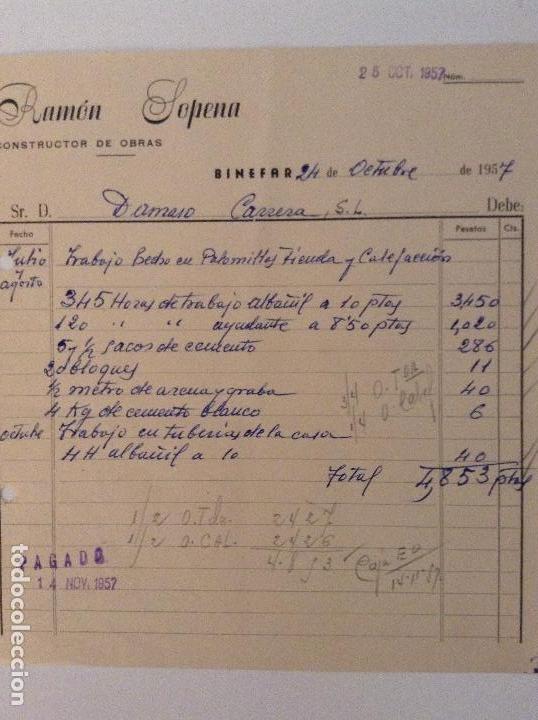 25 OCT. 1957 Núm.
Ramón Sopena
CONSTRUCTOR DE OBRAS
BINEFAR 24 de Octubre de 1957
Sr. D. Damaso Carrera, S.L. Debe:
Fecha Pesetas Cts.
Julio y Trabajo hecho en Palomillas Tienda y Calefacción
agosto
345 Horas de trabajo albañil a 10 ptas 3,450
120 " " ayudante a 8'50 ptas 1,020
5 y ½ sacos de cemento 286
2 bloques 11
½ metro de arena y graba 40
4 Kg de cemento blanco 6
octube Trabajo en tuberias de la casa
4 H albañil a 10 40
Total 4,853 ptas
1/2 O. Tda. 2427
1/2 O. CAL. 2426
4.853
PAGADO
14 NOV. 1957
todocoleccion